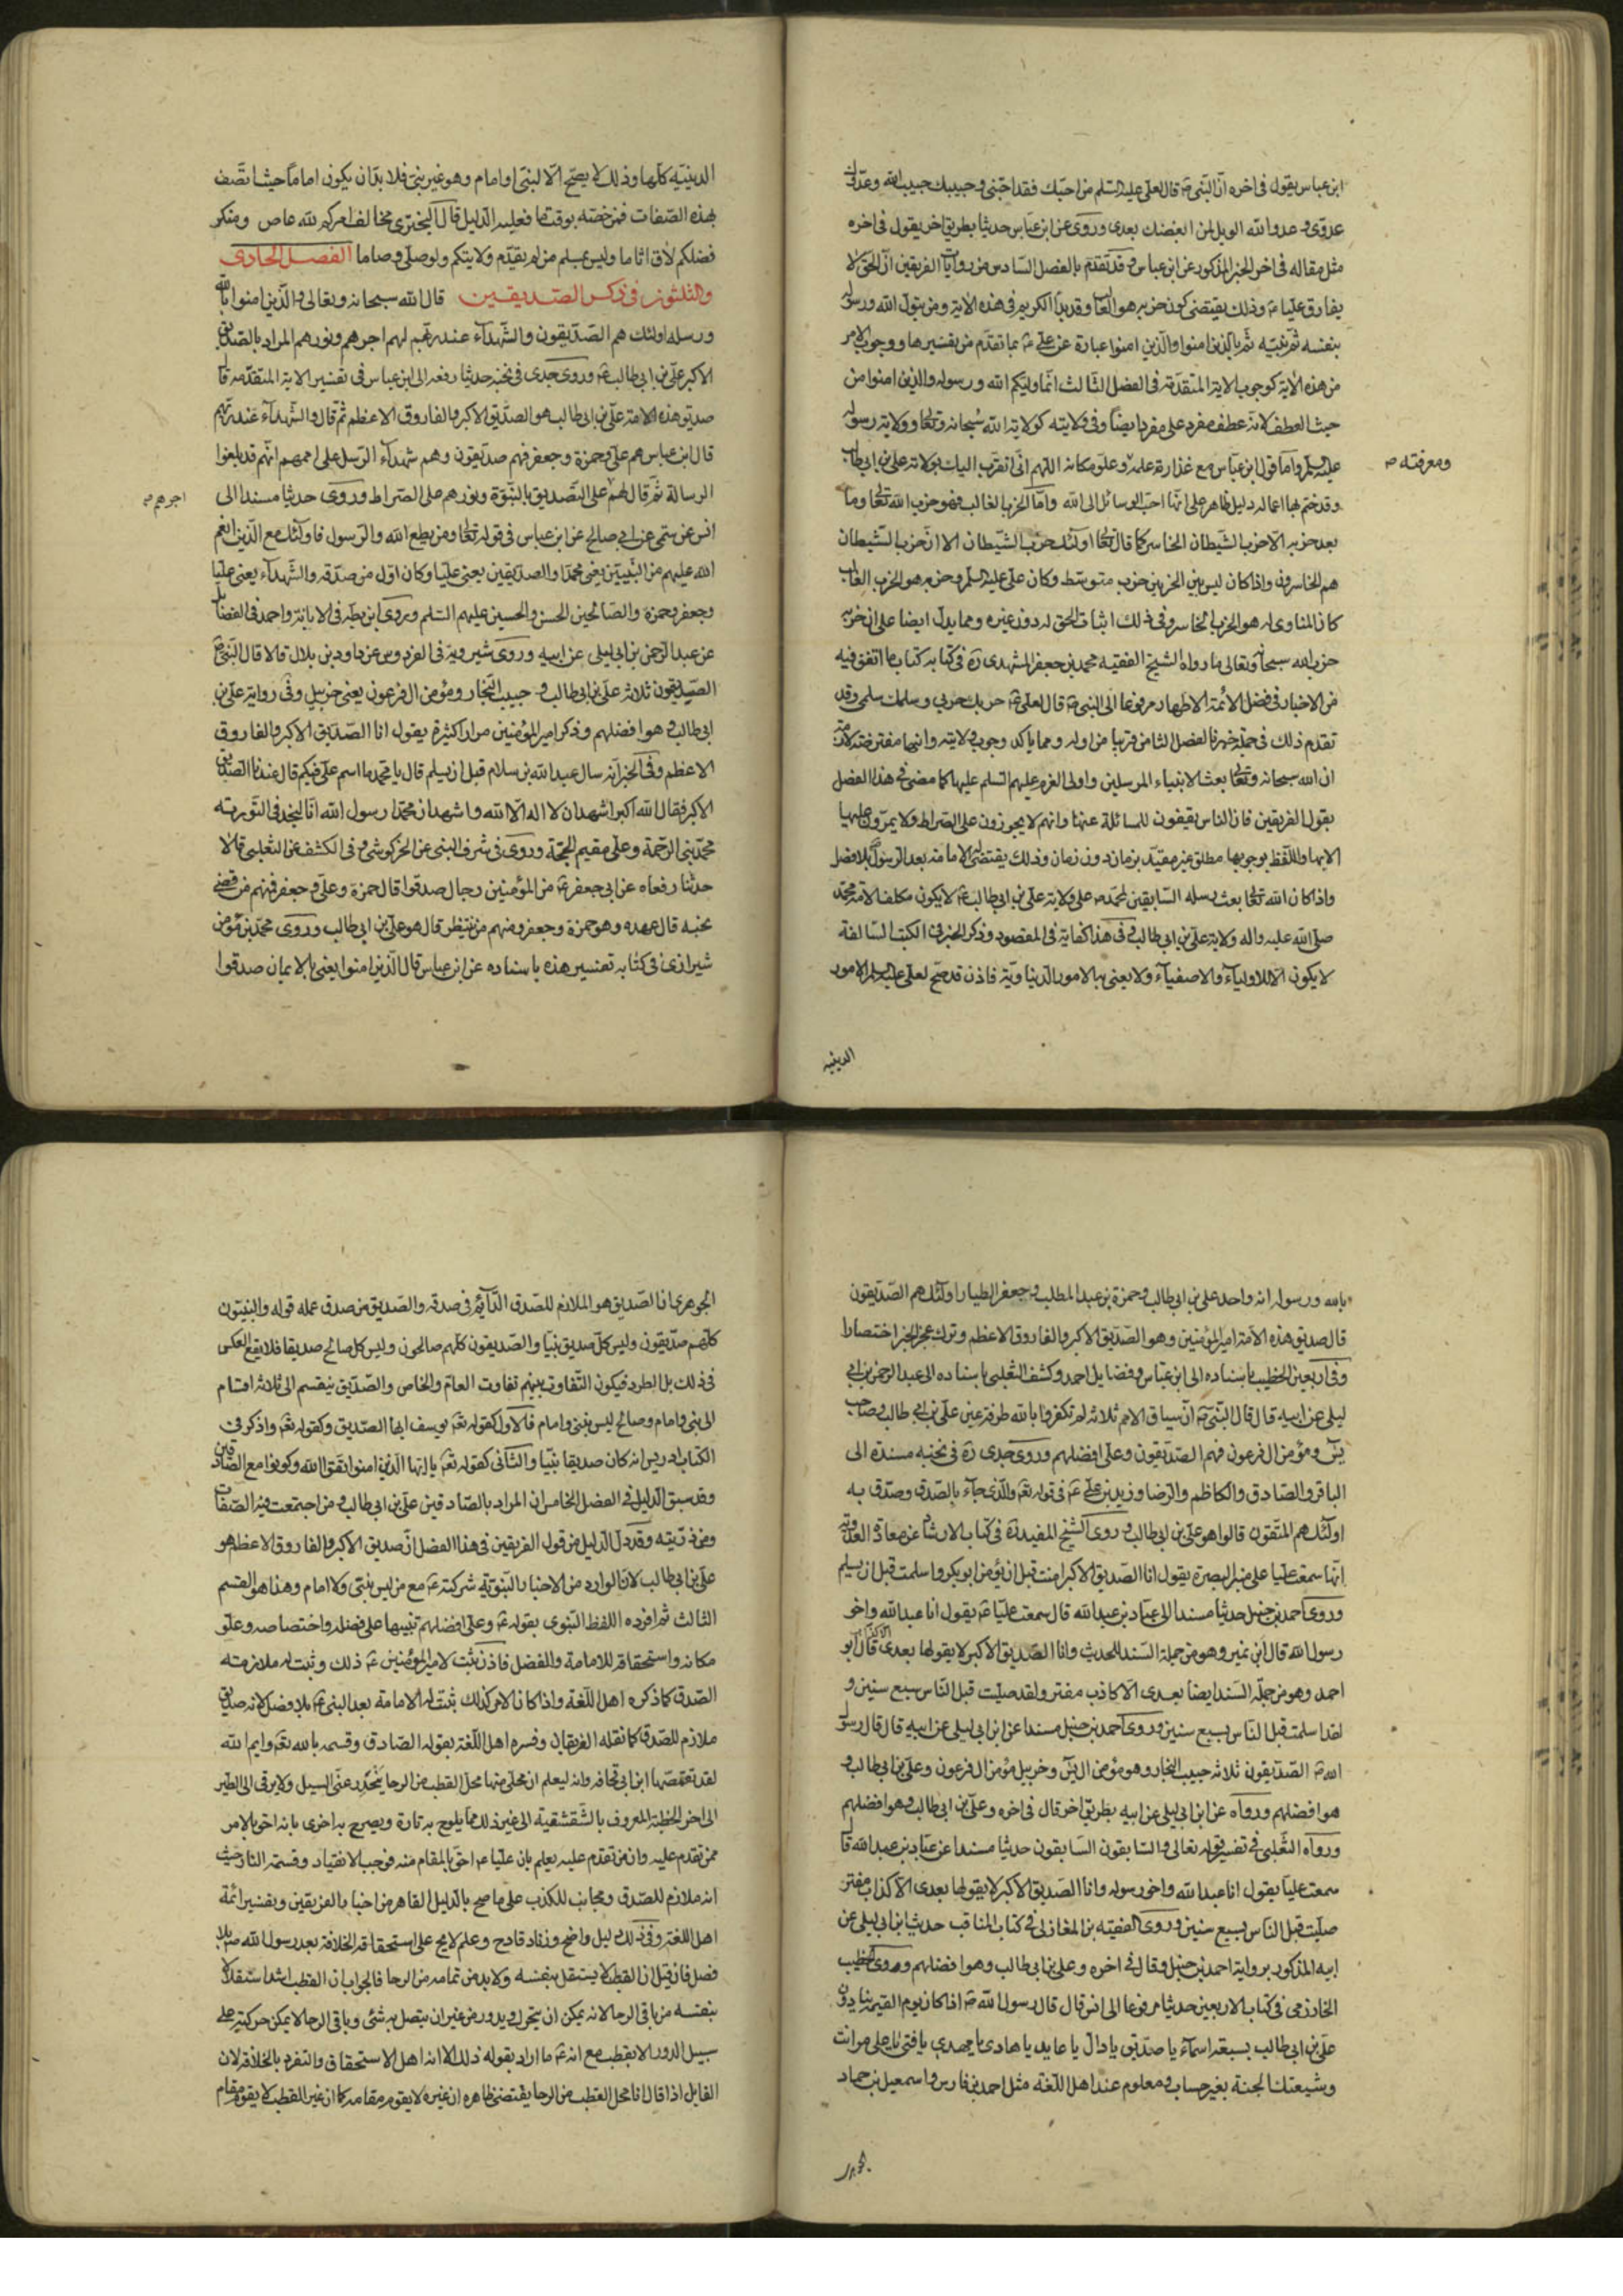 ابن عباس يقول في اخره ان النبي ص قال لعلي عليه السلم من احبك فقد احبني وحبيبك حبيب الله وعدوك
عدوي وعدو الله الويل لمن ابغضك بعدي وروى عن ابن عباس حديثا بطريق اخر يقول في اخره
مثل مقاله في اخر الخبر المذكور عن ابن عباس وقد تقدم بالفصل السادس من روايات الفريقين ان الحق لا
يفارق عليا ع وذلك يقتضي كون حزبه هو الغالب وقد بدأ الكريم في هذه الاية ومن يتول الله ورسوله
بنفسه ثم نبيه ثم بالذين امنوا والذين امنوا عبارة عن علي ع بما تقدم من تفسيرها ووجوب الامر
من هذه الاية كوجوب الاية المتقدمة في الفصل الثالث انما وليكم الله ورسوله والذين امنوا من
حيث العطف لانه عطف مفرد على مفرد ايضا وفي ولايته كولاية الله سبحانه وتعالى وولاية رسوله
عليه السلم واما قول ابن عباس مع غزارة علمه وعلو مكانه اللهم اني اتقرب اليك بولاية علي بن ابي طالب
ومعرفته ص
وقد ختم بها اعماله دليل ظاهر على انها احب الوسائل الى الله واما الحزب الغالب فهو حزب الله تعالى وما
بعد حزبه الا حزب الشيطان الخاسر كما قال تعالى اولئك حزب الشيطان الا ان حزب الشيطان
هم الخاسرون واذا كان ليس بين الحزبين حزب متوسط وكان علي عليه السلم وحزبه هو الحزب الغالب
كان المناوي له هو الحزب الخاسر وفي ذلك اثبات الحق له دون غيره ومما يدل ايضا على ان حزبه
حزب الله سبحانه وتعالى ما رواه الشيخ الفقيه محمد بن جعفر المشهدي ره في كتابه كتاب ما اتفق فيه
من الاخبار في فضل الائمة الاطهار مرفوعا الى النبي ص قال لعلي ع حربك حربي وسلمك سلمي وقد
تقدم ذلك في جملة خبر بالفصل الثامن قريبا من اوله ومما يأكد وجوب ولايته وانها مفترضة كلامه
ان الله سبحانه وتعالى بعث الانبياء المرسلين واولي العزم عليهم السلم عليها كما مضى في هذا الفصل
بقول الفريقين فان الناس يقيفون للمسائلة عنها وانهم لا يجوزون على الصراط ولا يمرون عليها
الا بها واللفظ بوجوبها مطلق غير مقيد بزمان دون زمان وذلك يقتضي الامامة بعد الرسول بلا فصل
واذا كان الله تعالى بعث رسله السابقين لمحمد ص على ولاية علي بن ابي طالب ع لا يكون مكلفا لامة محمد
صلى الله عليه واله ولاية علي بن ابي طالب وفي هذا كفاية في المقصود وذكر الخبر في الكتب السالفة
لا يكون الا للاولياء والاصفياء ولا يعنى به الامور الدنياوية فاذن قد صح لعلي عليه السلم الامور
الدينية
الدينية كلها وذلك لا يصح الا لنبي او امام وهو غير نبي فلا بد ان يكون اماما حيث اتصف
بهذه الصفات فمن خصه بوقت ما فعليه الدليل قال البختري مخالف امركم لله عاص ومنكر
فضلكم لاق اثاما وليس بمسلم من لم يقدم ولايتكم ولو صلى وصاما الفصل الحادي
والثلثون في ذكر الصديقين قال الله سبحانه وتعالى والذين امنوا بالله
ورسله اولئك هم الصديقون والشهداء عند ربهم لهم اجرهم ونورهم المراد بالصديق
الاكبر علي بن ابي طالب ع وروى جدي في نخبه حديثا رفعه الى ابن عباس في تفسير الاية المتقدمة قال
صديق هذه الامة علي بن ابي طالب هو الصديق الاكبر والفاروق الاعظم ثم قال والشهداء عند ربهم
قال ابن عباس هم علي وحمزة وجعفر فهم صديقون وهم شهداء الرسل على اممهم انهم قد بلغوا
الرسالة ثم قال لهم على التصديق بالنبوة ونورهم على الصراط وروى حديثا مسندا الى
اجرهم ص
انس عن سمي عن ابي صالح عن ابن عباس في قوله تعالى ومن يطع الله والرسول فاولئك مع الذين انعم
الله عليهم من النبيين يعني محمدا والصديقين يعني عليا وكان اول من صدقه والشهداء يعني عليا
وجعفر وحمزة والصالحين الحسن والحسين عليهم السلم وروى ابن بطة في الابانة واحمد في الفضائل
عن عبد الرحمن بن ابي ليلى عن ابيه وروى شيرويه في الفردوس عن داود بن بلال قالا قال النبي ص
الصديقون ثلاثة علي بن ابي طالب وحبيب النجار ومؤمن ال فرعون يعني حزبيل وفي رواية علي بن
ابي طالب وهو افضلهم وذكر امير المؤمنين مرارا كثيرة يقول انا الصديق الاكبر والفاروق
الاعظم وفي الخبر انه سال عبد الله بن سلام قبل ان يسلم قال يا محمد ما اسم علي فيكم قال عندنا الصديق
الاكبر فقال الله اكبر اشهد ان لا اله الا الله واشهد ان محمدا رسول الله انا لنجد في التورية
محمد نبي الرحمة وعلي مقيم الحجة وروى في شرف النبي عن الخركوشي وفي الكشف عن الثعلبي قالا
حدثنا رفعاه عن ابي جعفر ع من المؤمنين رجال صدقوا قال حمزة وعلي وجعفر فمنهم من قضى
نحبه قال عهده وهو حمزة وجعفر ومنهم من ينتظر قال هو علي بن ابي طالب وروى محمد بن مؤمن
شيرازي في كتابه تفسير هذه باسناده عن ابن عباس قال الذين امنوا يعني بالايمان صدقوا
بالله ورسوله انه واحد علي بن ابي طالب وحمزة بن عبد المطلب وجعفر الطيار اولئك هم الصديقون
قال صديق هذه الامة امير المؤمنين وهو الصديق الاكبر والفاروق الاعظم وترك عجز الخبر اختصارا
وفي اربعين الخطيب باسناده الى ابن عباس وفضايل احمد وكشف الثعلبي باسناده الى عبد الرحمن بن ابي
ليلى عن ابيه قال قال النبي ص ان سباق الامم ثلاثة لم يكفروا بالله طرفة عين علي بن ابي طالب وصاحب
يس ومؤمن ال فرعون فهم الصديقون وعلي افضلهم وروى جدي ره في نخبه مسندة الى
الباقر والصادق والكاظم والرضا وزيد بن علي ع في قوله تعم والذي جاء بالصدق وصدق به
اولئك هم المتقون قالوا هو علي بن ابي طالب وروى الشيخ المفيد ره في كتاب الارشاد عن معاذة العدوية
انها سمعت عليا على منبر البصرة يقول انا الصديق الاكبر امنت قبل ان يؤمن ابو بكر واسلمت قبل ان يسلم
وروى احمد بن حنبل حديثا مسندا الى عباد بن عبد الله قال سمعت عليا ع يقول انا عبد الله واخو
رسول الله قال ابن نمير وهو من جملة السند للحديث وانا الصديق الاكبر لا يقولها بعدي قال ابو
احمد وهو من جملة السند ايضا بعدي الا كاذب مفتر ولقد صليت قبل الناس سبع سنين و
لقد اسلمت قبل الناس بسبع سنين وروى احمد بن حنبل مسندا عن ابن ابي ليلى عن ابيه قال قال رسول
الله ص الصديقون ثلاثة حبيب النجار وهو مؤمن ال يس وخربيل مؤمن ال فرعون وعلي بن ابي طالب و
هو افضلهم ورواه عن ابن ابي ليلى عن ابيه بطريق اخر قال في اخره وعلي بن ابي طالب وهو افضلهم
ورواه الثعلبي في تفسير قوله تعالى والسابقون السابقون حديثا مسندا عن عباد بن عبد الله قال
سمعت عليا يقول انا عبد الله واخو رسوله وانا الصديق الاكبر لا يقولها بعدي الا كذاب مفتر
صليت قبل الناس بسبع سنين وروى الفقيه بن المغازلي في كتاب المناقب حديث ابن ابي ليلى عن
ابيه المذكور برواية احمد بن حنبل وقال في اخره وعلي بن ابي طالب وهو افضلهم وروى الخطيب
الخارزمي في كتاب الاربعين حديثا مرفوعا الى انس قال قال رسول الله ص اذا كان يوم القيمة ينادون
علي بن ابي طالب بسبعة اسماء يا صديق يا دال يا عابد يا هادي يا مهدي يا فتى يا علي مر انت
وشيعتك الجنة بغير حساب ومعلوم عند اهل اللغة مثل احمد بن فارس واسمعيل بن حماد
الجوهري ان الصديق هو الملازم للصدق الدائم في صدقه والصديق من صدق عمله قوله والنبيون
كلهم صديقون وليس كل صديق نبيا والصديقون كلهم صالحون وليس كل صالح صديقا فلا يقع العكس
في ذلك بل الطرد فيكون التفاوت بينهم تفاوت العام والخاص والصديق ينقسم الى ثلاثة اقسام
الى نبي وامام وصالح ليس بنبي وامام فالاول كقوله تعم يوسف ايها الصديق وكقوله تعم واذكر في
الكتاب ادريس انه كان صديقا نبيا والثاني كقوله تعم يا ايها الذين امنوا اتقوا الله وكونوا مع الصادقين
وقد سبق الدليل في الفصل الخامس ان المراد بالصادقين علي بن ابي طالب و من اجتمعت فيه الصفات
ومن ذريته وقد دل الدليل من قول الفريقين في هذا الفصل ان صديق الاكبر والفاروق الاعظم هو
علي بن ابي طالب لان الوارد من الاخبار بالنبوية شركته ع مع من ليس بنبي ولا امام وهذا هو القسم
الثالث ثم افرده اللفظ النبوي بقوله ع وعلي افضلهم تنبيها على فضله واختصاصه وعلو
مكانه واستحقاقه للامامة والفضل فاذن ثبت لامير المؤمنين ع ذلك وثبت له ملازمته
الصدق كما ذكره اهل اللغة واذا كان الامر كذلك ثبت له الامامة بعد النبي ص بلا فصل لانه صديق
ملازم للصدق كما نقله الفريقان وفسره اهل اللغة بقوله الصادق وقسمه بالله تعم وايم الله
لقد تقمصها ابن ابي قحافه وانه ليعلم ان محلي منها محل القطب من الرحا ينحدر عني السيل ولا يرقى الى الطير
الى اخر الخطبة المعروف بالشقشقية الى غير ذلك مما يلوح به تارة ويصرح به اخرى بانه احق بالامر
ممن تقدم عليه وان من تقدم عليه يعلم بان عليا ع احق بالمقام منه فوجب الانقياد وقسمه الثاني حيث
انه ملازم للصدق ومجانب للكذب على ما صح بالدليل القاهر من اخبار الفريقين وبتفسير ائمة
اهل اللغة وفي ذلك دليل واضح وزناد قادح وعلم لايح على استحقاقه الخلافة بعد رسول الله ص بلا
فصل فان قيل ان القطب لا يستقل بنفسه ولا بد من تمامه من الرحا فالجواب ان القطب اشد استقلالا
بنفسه من باقي الرحا لانه يمكن ان يتحرك ويدور من غير ان يتصل به شئي وباقي الرحا لا يمكن حركته على
سبيل الدور الا بقطب مع انه ع ما اراد بقوله ذلك الا انه اهل الاستحقاق والتفرد بالخلافة لان
القايل اذا قال انا محل القطب من الرحا يقتضي ظاهره ان غيره لا يقوم مقامه كما ان غير القطب لا يقوم مقام